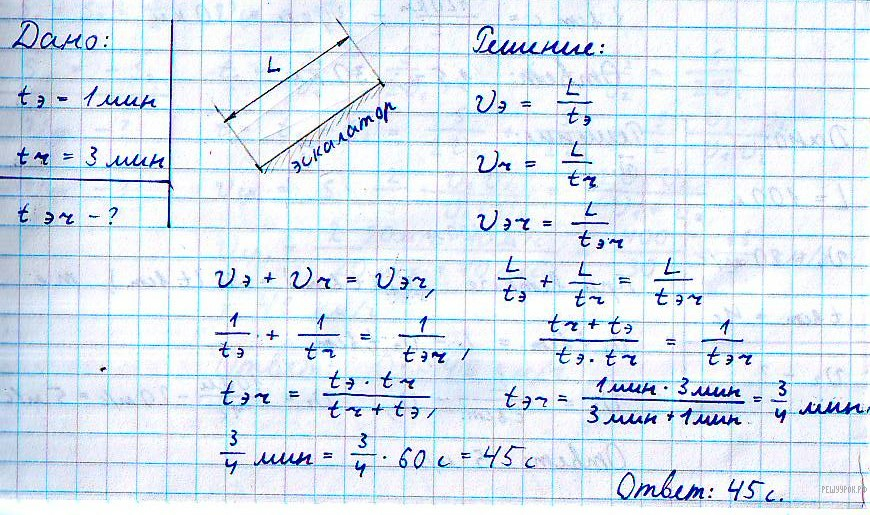 Дано:
tэ = 1 мин
tч = 3 мин
tэч - ?
L
эскалатор
Решение:
υэ = L/tэ
υч = L/tч
υэч = L/tэч
υэ + υч = υэч, L/tэ + L/tч = L/tэч
1/tэ + 1/tч = 1/tэч, (tч + tэ)/(tэ · tч) = 1/tэч
tэч = (tэ · tч)/(tч + tэ), tэч = (1 мин · 3 мин)/(3 мин + 1 мин) = 3/4 мин,
3/4 мин = 3/4 · 60 с = 45 с
Ответ: 45 с.
РЕШУУРОК.РФ